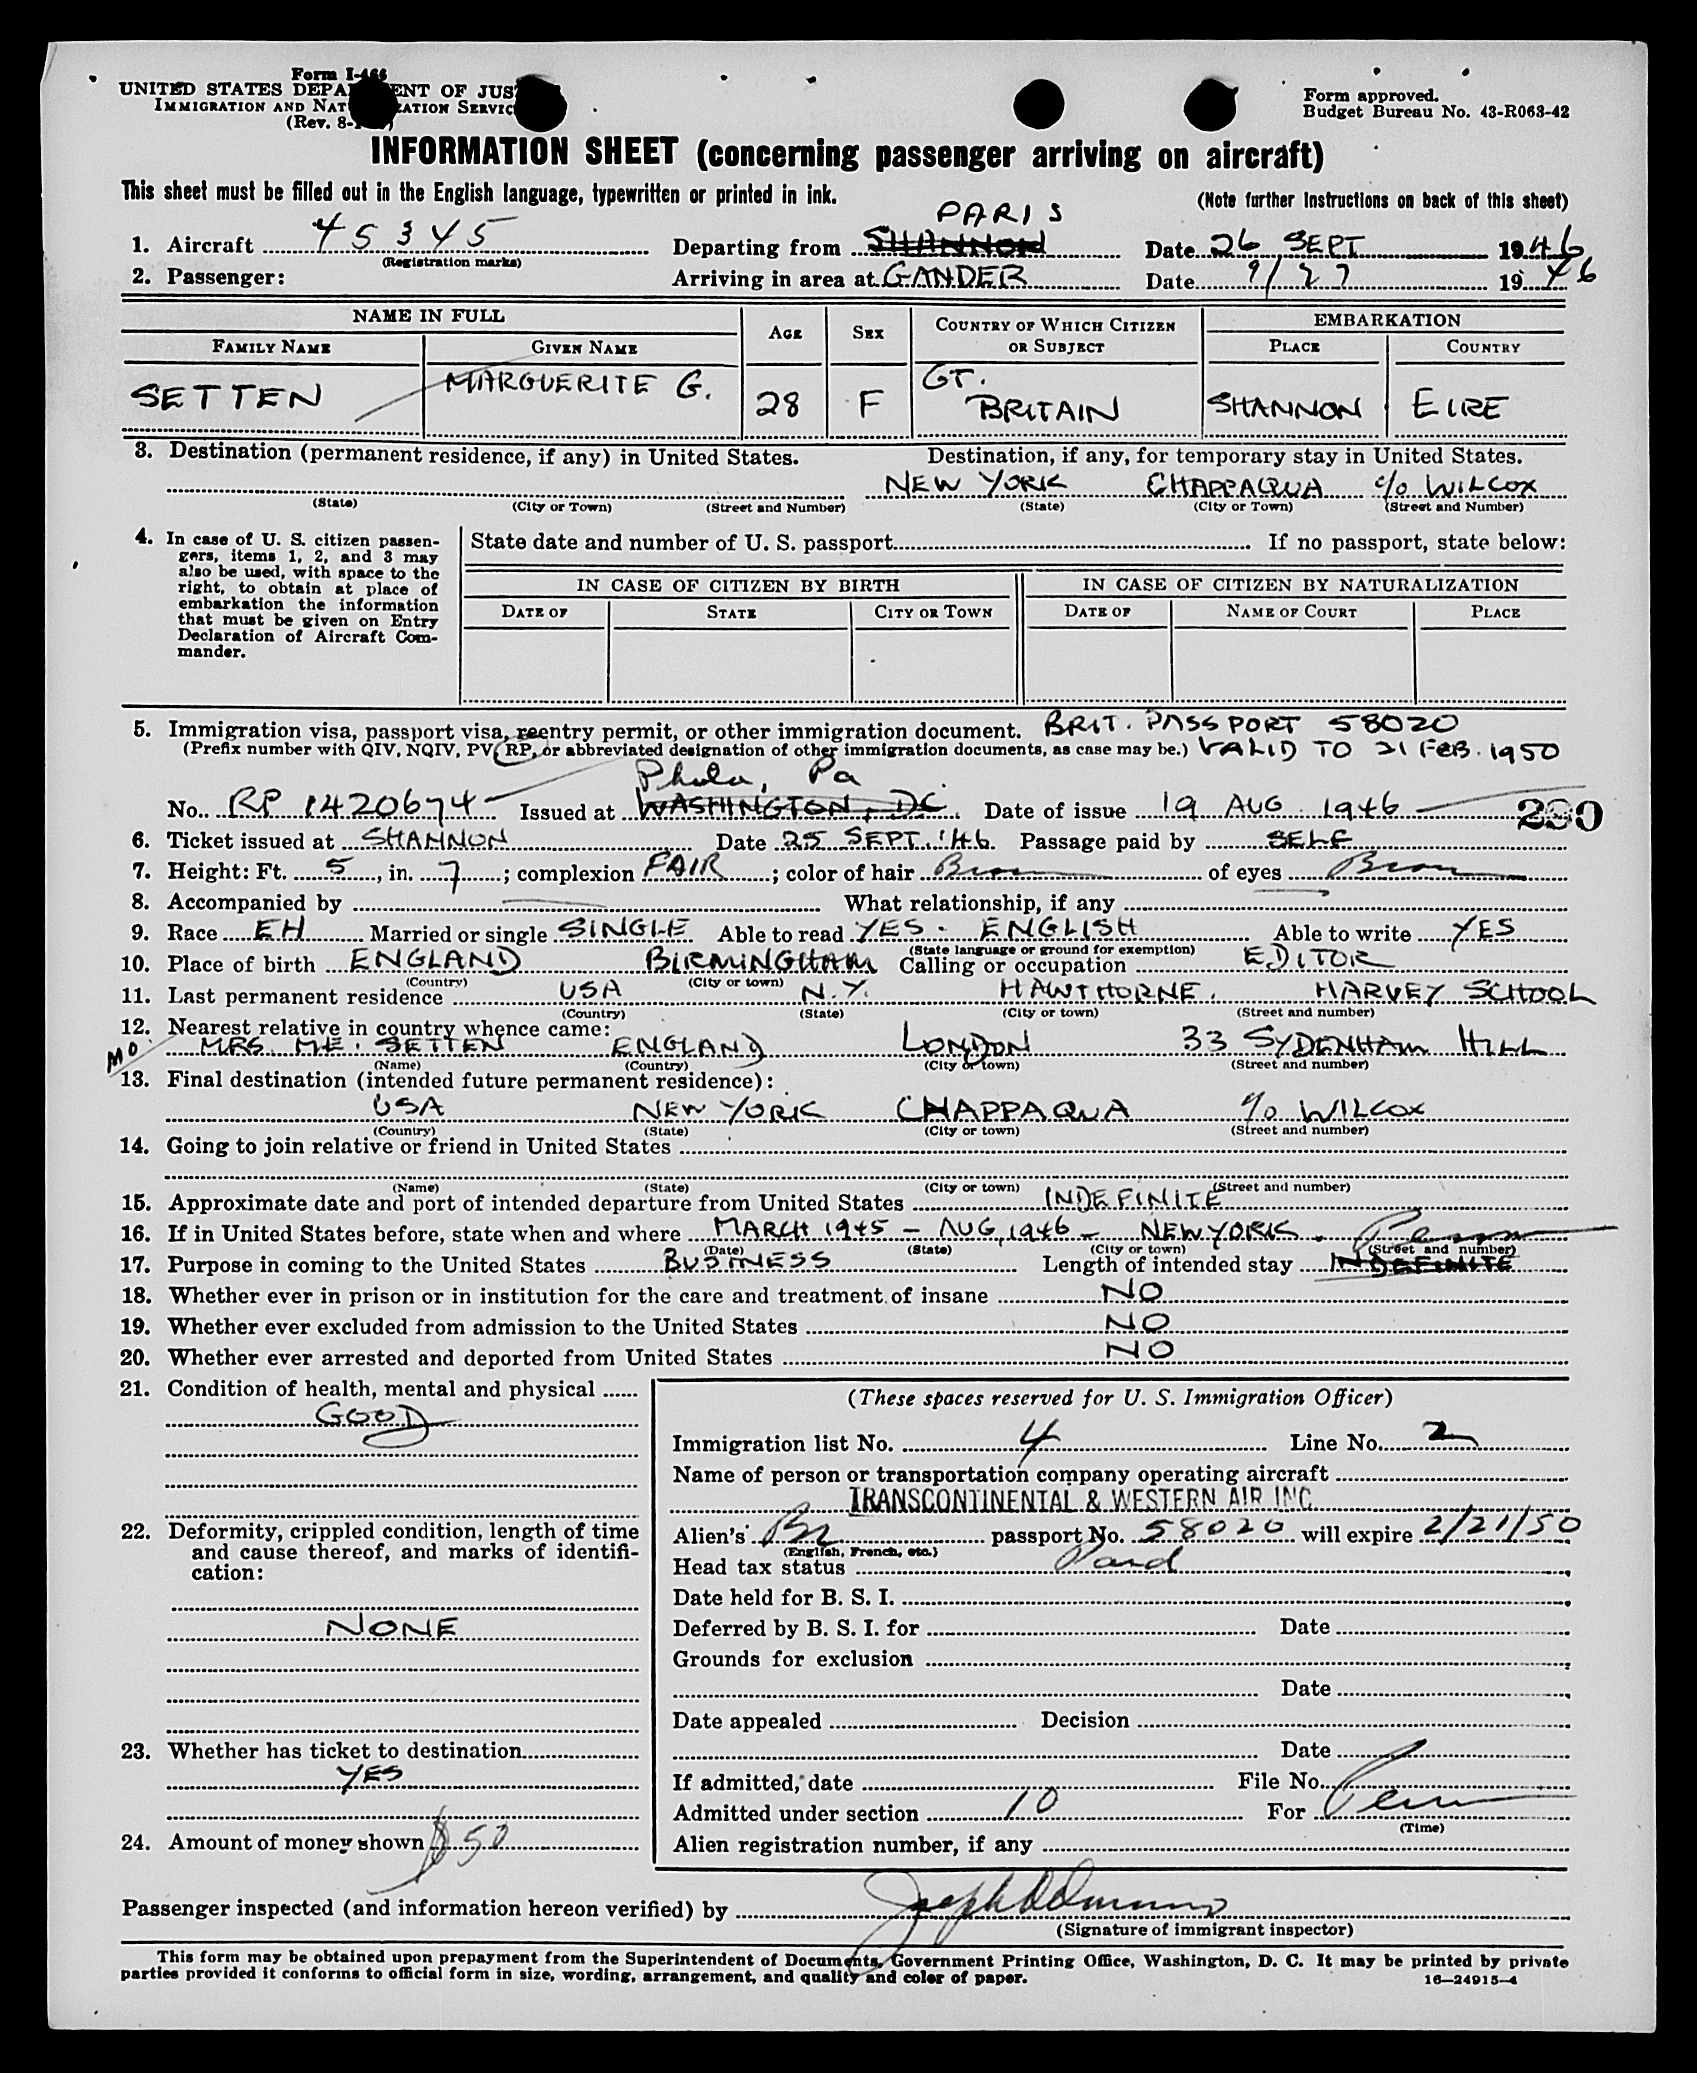 Form I-466
UNITED STATES DEPA ENT OF JUS
IMMIGRATION AND NAT ATION SERVIC
(Rev. 8-
Form approved.
Budget Bureau No. 43-R063-42
INFORMATION SHEET (concerning passenger arriving on aircraft)
This sheet must be filled out in the English language, typewritten or printed in ink.
(Note further instructions on back of this sheet)
PARIS
1. Aircraft 45345 Departing from SHANNON Date 26 SEPT 1946
(Registration marks)
2. Passenger: Arriving in area at GANDER Date 9/27 1946
NAME IN FULL AGE SEX COUNTRY OF WHICH CITIZEN OR SUBJECT EMBARKATION
FAMILY NAME GIVEN NAME PLACE COUNTRY
SETTEN MARGUERITE G. 28 F GT. BRITAIN SHANNON EIRE
3. Destination (permanent residence, if any) in United States. Destination, if any, for temporary stay in United States.
NEW YORK CHAPPAQUA c/o WILCOX
(State) (City or Town) (Street and Number) (State) (City or Town) (Street and Number)
4. In case of U. S. citizen passen-
gers, items 1, 2, and 3 may
also be used, with space to the
right, to obtain at place of
embarkation the information
that must be given on Entry
Declaration of Aircraft Com-
mander.
State date and number of U. S. passport If no passport, state below:
IN CASE OF CITIZEN BY BIRTH IN CASE OF CITIZEN BY NATURALIZATION
DATE OF STATE CITY OR TOWN DATE OF NAME OF COURT PLACE
5. Immigration visa, passport visa, reentry permit, or other immigration document. BRIT. PASSPORT 58020
(Prefix number with QIV, NQIV, PV, RP, or abbreviated designation of other immigration documents, as case may be.) VALID TO 21 FEB. 1950
Phila, Pa
No. RP 1420674 Issued at WASHINGTON, DC. Date of issue 19 AUG. 1946
6. Ticket issued at SHANNON Date 25 SEPT. '46. Passage paid by SELF
7. Height: Ft. 5, in. 7; complexion FAIR; color of hair Brown of eyes Brown
8. Accompanied by — What relationship, if any —
9. Race EH Married or single SINGLE Able to read YES. ENGLISH Able to write YES
(State language or ground for exemption)
10. Place of birth ENGLAND BIRMINGHAM Calling or occupation EDITOR
(Country) (City or town)
11. Last permanent residence USA N.Y. HAWTHORNE. HARVEY SCHOOL
(Country) (State) (City or town) (Street and number)
12. Nearest relative in country whence came:
MO. MRS. M.E. SETTEN ENGLAND LONDON 33 SYDENHAM HILL
(Name) (Country) (City or town) (Street and number)
13. Final destination (intended future permanent residence):
USA NEW YORK CHAPPAQUA c/o WILCOX
(Country) (State) (City or town) (Street and number)
14. Going to join relative or friend in United States
(Name) (State) (City or town) (Street and number)
15. Approximate date and port of intended departure from United States INDEFINITE
16. If in United States before, state when and where MARCH 1945 – AUG, 1946 – NEW YORK.
(Date) (State) (City or town) (Street and number)
17. Purpose in coming to the United States BUSINESS Length of intended stay INDEFINITE
18. Whether ever in prison or in institution for the care and treatment of insane NO
19. Whether ever excluded from admission to the United States NO
20. Whether ever arrested and deported from United States NO
21. Condition of health, mental and physical
GOOD
22. Deformity, crippled condition, length of time
and cause thereof, and marks of identifi-
cation:
NONE
23. Whether has ticket to destination
YES
24. Amount of money shown $50
(These spaces reserved for U. S. Immigration Officer)
Immigration list No. 4 Line No. 2
Name of person or transportation company operating aircraft
TRANSCONTINENTAL & WESTERN AIR INC.
Alien's Br passport No. 58020 will expire 2/21/50
(English, French, etc.)
Head tax status
Date held for B. S. I.
Deferred by B. S. I. for Date
Grounds for exclusion
Date
Date appealed Decision
Date
If admitted, date File No.
Admitted under section 10 For Perm
(Time)
Alien registration number, if any
Passenger inspected (and information hereon verified) by
(Signature of immigrant inspector)
This form may be obtained upon prepayment from the Superintendent of Documents, Government Printing Office, Washington, D. C. It may be printed by private
parties provided it conforms to official form in size, wording, arrangement, and quality and color of paper.
16—24915-4